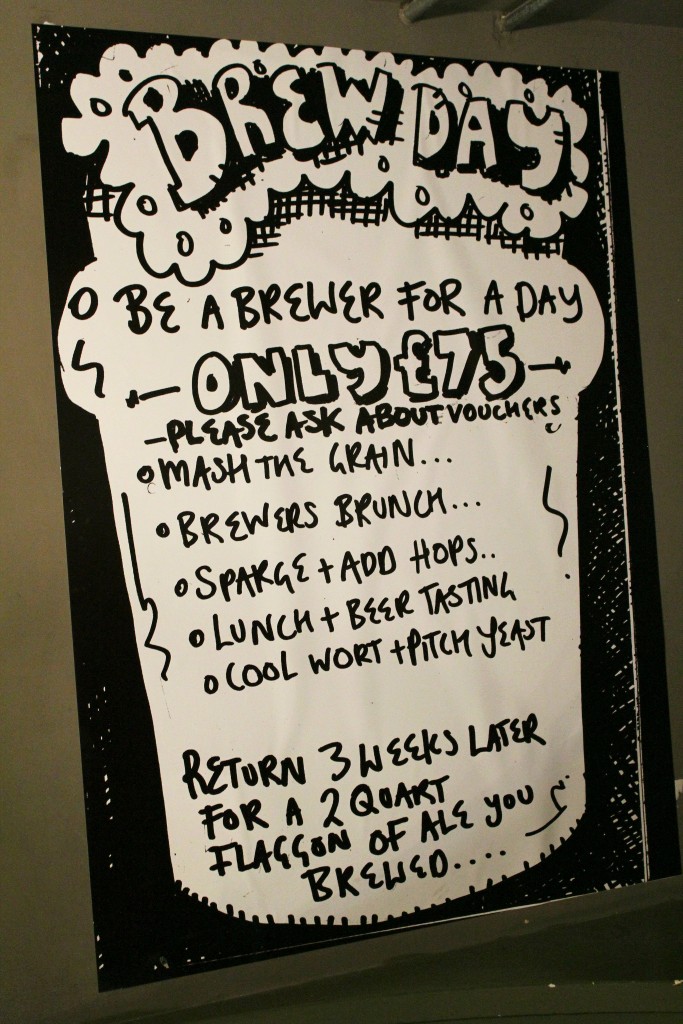 BREW DAY
BE A BREWER FOR A DAY
ONLY £75
-PLEASE ASK ABOUT VOUCHERS
MASH THE GRAIN...
BREWERS BRUNCH...
SPARGE + ADD HOPS..
LUNCH + BEER TASTING
COOL WORT + PITCH YEAST
RETURN 3 WEEKS LATER
FOR A 2 QUART
FLAGGON OF ALE YOU
BREWED....